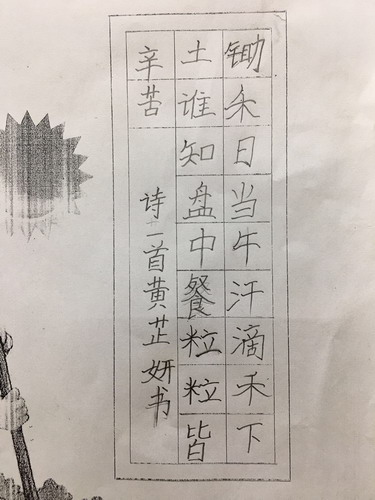 锄禾日当午汗滴禾下
土谁知盘中餐粒粒皆
辛苦
诗一首黄芷妍书